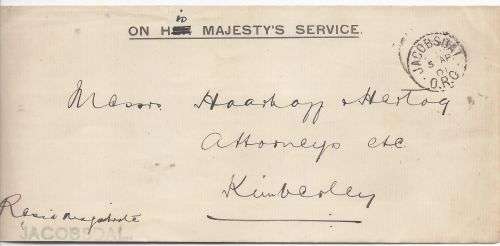 is
ON HER MAJESTY'S SERVICE.
JACOBSDAL
5 AP
01
O.R.C.
Messrs Haarhoff & Hertog
Attorneys etc
Kimberley
Resid Magistrate
JACOBSDAL.